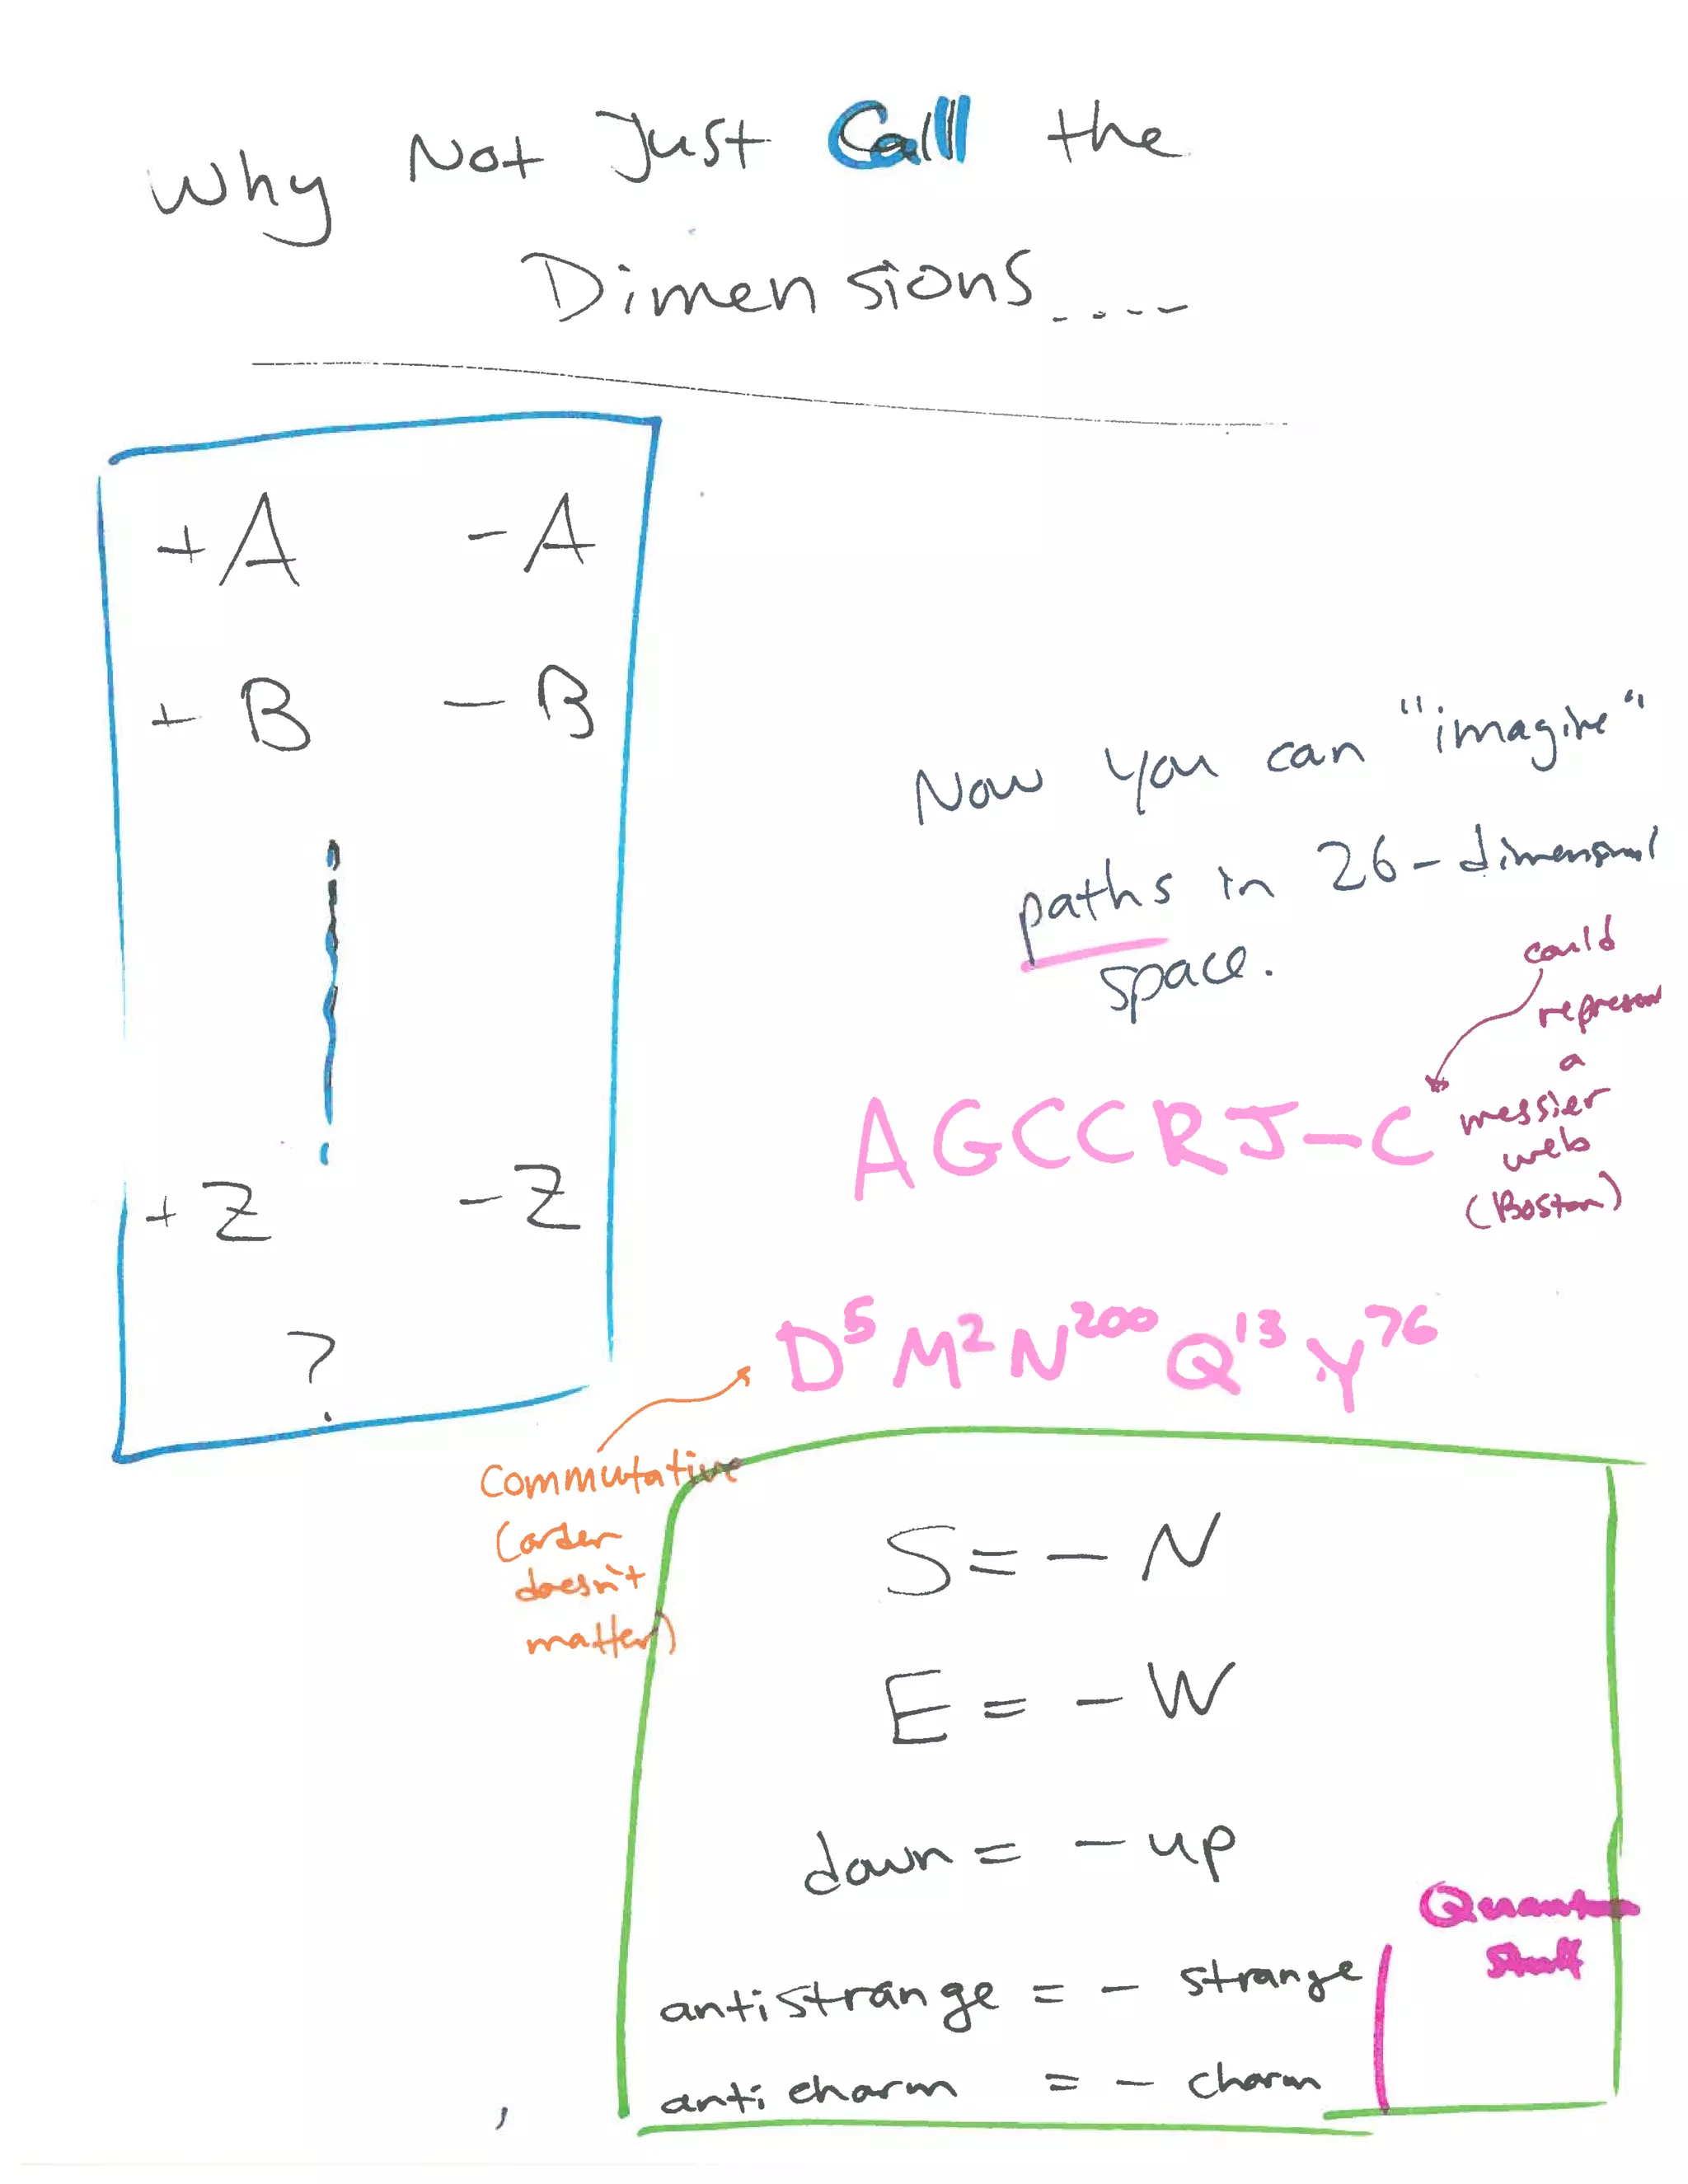 Why Not Just Call the
Dimensions....
+A -A
+B -B
+Z -Z
?
Now you can "imagine"
paths in 26-dimensional
space.
could
represent
a
messier
web
(Boston)
AGCCRJ-C
D⁵M²N²⁰⁰Q¹³Y⁷⁶
Commutative
(order
doesn't
matter)
S = - N
E = - W
down = - up
antistrange = - strange
anti charm = - charm
Quantum
stuff